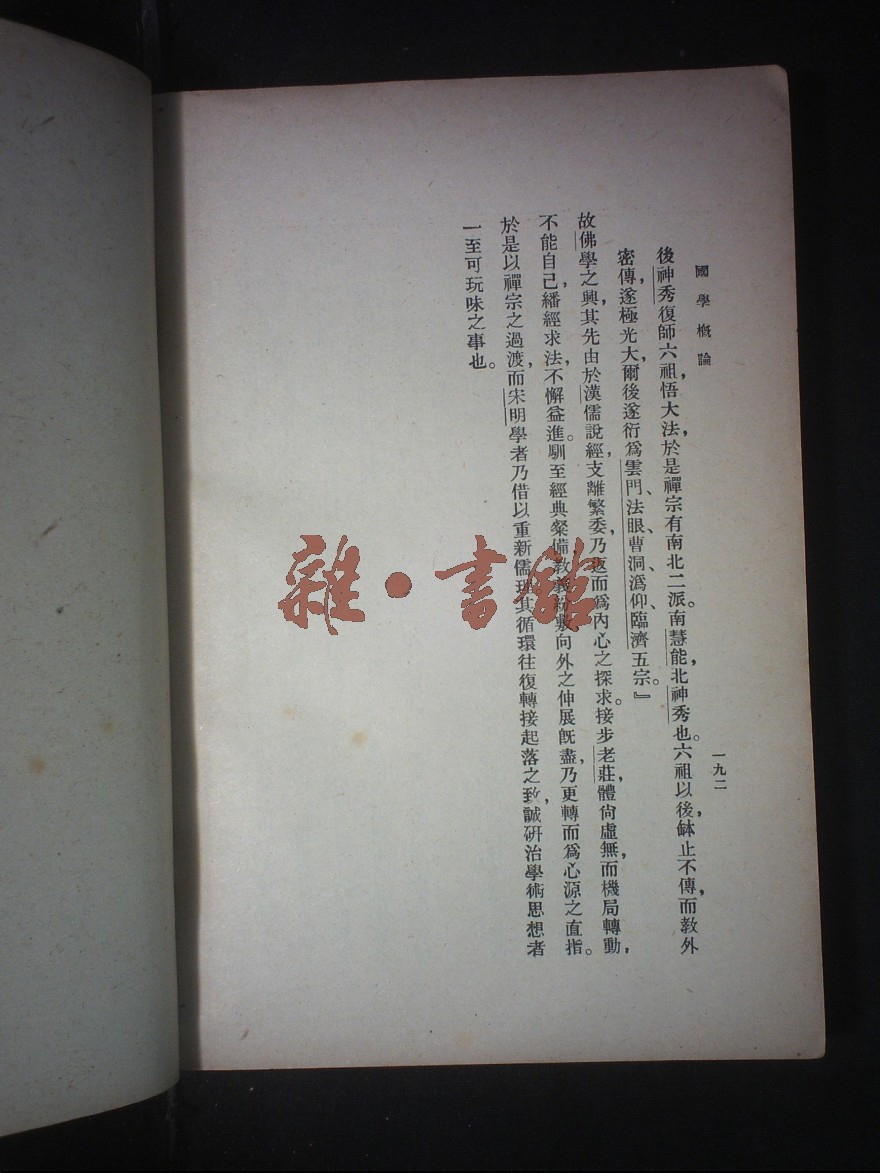 國學概論
一九二
後神秀復師六祖，悟大法，於是禪宗有南北二派。南慧能，北神秀也。六祖以後，缽止不傳，而教外
密傳，遂極光大，爾後遂衍爲雲門、法眼、曹洞、潙仰、臨濟五宗。』
故佛學之興，其先由於漢儒說經，支離繁委，乃返而爲內心之探求。接步老莊，體尙虛無，而機局轉動，
不能自已，繙經求法，不懈益進。馴至經典粲備，教義紛敷，向外之伸展旣盡，乃更轉而爲心源之直指。
於是以禪宗之過渡，而宋明學者乃借以重新儒理。其循環往復，轉接起落之致，誠硏治學術思想者
一至可玩味之事也。
雜·書館